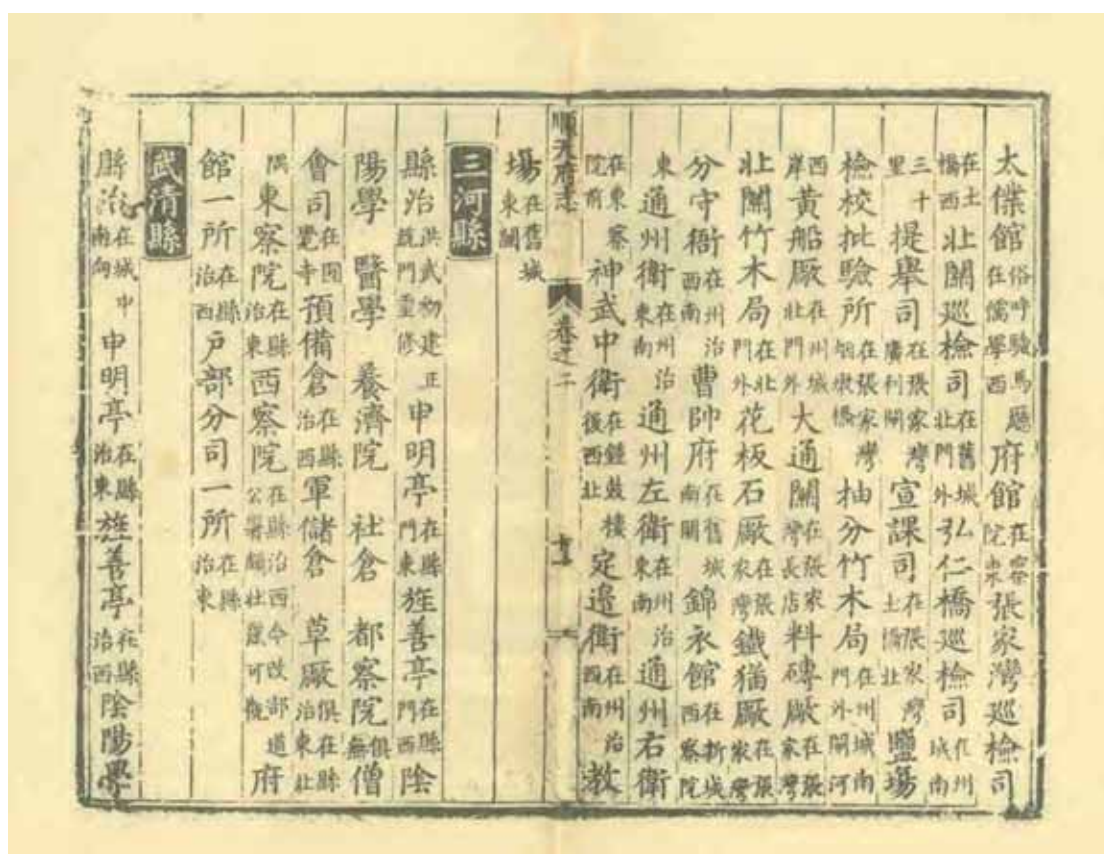 太僕館俗呼駙馬廳在儒學西府館在察院東張家灣巡檢司
在土橋西北關巡檢司在舊城北門外弘仁橋巡檢司在州城南
三十里提舉司在張家灣廣利閘宣課司在張家灣土橋北鹽場
檢校批驗所在張家灣烟墩橋抽分竹木局在州城南門外閘河
西岸黃船廠在州城北門外大通關在張家灣長店料磚廠在張家灣
北關竹木局在北門外花板石廠在張家灣鐵猫廠在張家灣
分守衙在州治西南曹帥府在舊城南關錦衣館在新城西察院
東通州衛在州治東南通州左衛在州治東南通州右衛
在東察院前神武中衛在鐘鼓樓後西北定邊衛在州治西南教
場在舊城東關
三河縣
縣治洪武初建正統門重修申明亭在縣門東旌善亭在縣門西陰
陽學 醫學 養濟院 社倉 都察院俱無僧
會司在圓覺寺預備倉在縣治西軍儲倉 草廠俱在縣治東北
隅東察院在縣治東西察院在縣治西今改部道公署頗壯麗可觀府
館一所在縣治西户部分司一所在縣治東
武清縣
縣治在城中南向申明亭在縣治東旌善亭在縣治西陰陽學
順天府志
卷之二